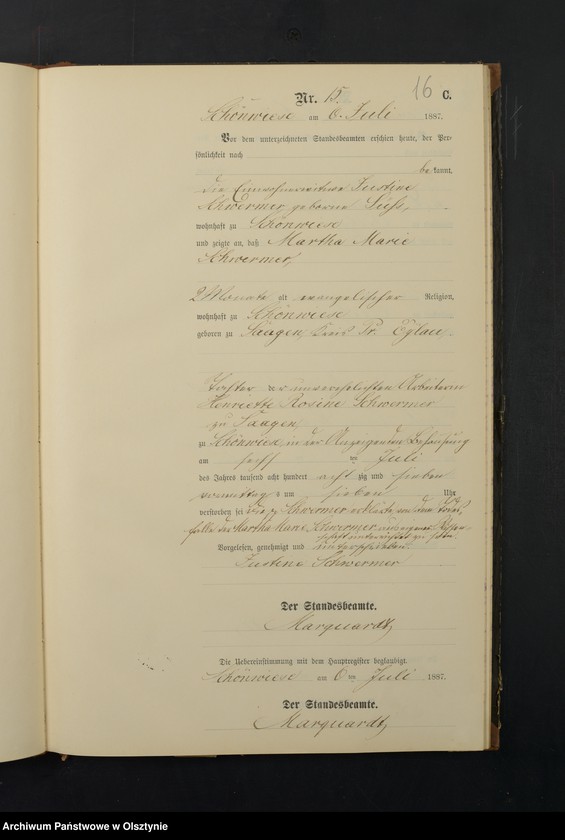 16
Nr. 15. C.
Schönwiese am 6. Juli 1887.
Vor dem unterzeichneten Standesbeamten erschien heute, der Per-
sönlichkeit nach
be kannt,
die Einwohnerwittwe Justine
Schwermer geborene
wohnhaft zu Schönwiese
und zeigte an, daß Martha Marie
Schwermer,
2 Monate alt evangelischer Religion,
wohnhaft zu Schönwiese
geboren zu Saagen, Kreis Pr. Eylau,
Tochter der unverehelichten Arbeiterin
Henriette Rosine Schwermer
zu Saagen,
zu Schönwiese, in der Anzeigenden Behausung
am sechs ten Juli
des Jahres tausend acht hundert acht zig und sieben
vormittags um sieben Uhr
verstorben sei Schwermer erklärte von dem Todes-
falle der Martha Marie Schwermer aus eigener Wissen-
schaft unterrichtet zu sein.
Vorgelesen, genehmigt und unterschrieben.
Justine Schwermer
Der Standesbeamte.
Marquardt,
Die Uebereinstimmung mit dem Hauptregister beglaubigt.
Schönwiese am 6 ten Juli 1887.
Der Standesbeamte.
Marquardt,
Archiwum Państwowe w Olsztynie